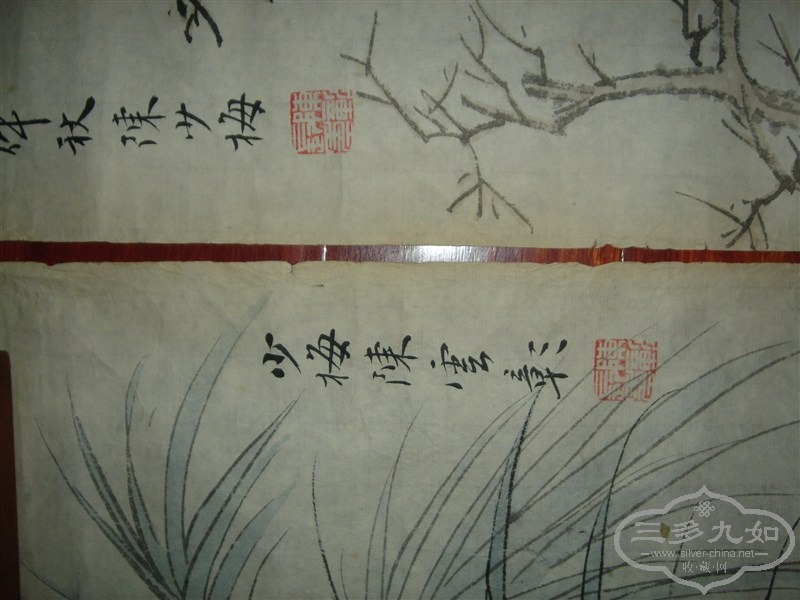 年秋陳少梅
少梅陳雲彰
三多九如
www.silver-china.net
收·藏·网